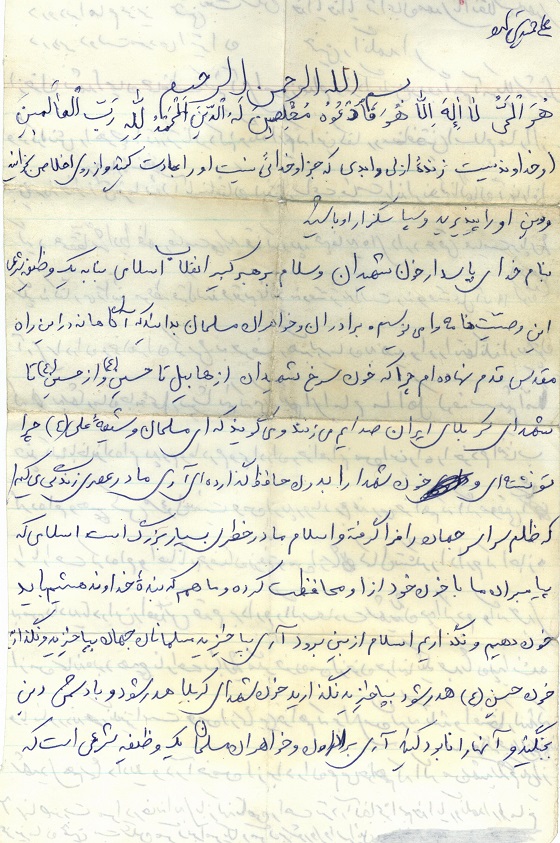 بسم الله الرحمن الرحیم
هُوَ الْحَیُّ لا اِلهَ الّا هُوَ فَادْعُوهُ مُخْلِصِینَ لَهُ الدّینَ اَلْحَمْدُ لِلّهِ رَبِّ الْعالَمینَ
(و خداوندیست زندهٔ ازلی و ابدی که جز او خدائی نیست او را عبادت کنید و از روی اخلاص
و دین او را بپذیرید و سپاسگزار او باشید
بنام خدای پاسدار خون شهیدان و سلام بر رهبر کبیر انقلاب اسلامی بنا به یک وظیفه شرعی
این وصیتنامه را می نویسم. برادران و خواهران مسلمان بدانید که آگاهانه در این راه
مقدس قدم نهاده ام چرا که خون سرخ شهیدان از هابیل تا حسین (ع) و از حسین (ع) تا
شهدای کربلای ایران صدایم می زنند و می گویند که ای مسلمان و شیعهٔ علی (ع) چرا
نشسته ای و خون شهدا را بدون حافظ گذارده ای آری ما در عصری زندگی می کنیم
که ظلم سراسر جهان را فرا گرفته و اسلام ما در خطری بسیار بزرگ است اسلامی که
پیامبران ما با خون خود از او محافظت کرده و ما هم که بندهٔ خداوند هستیم باید
خون دهیم و نگذاریم اسلام از بین برود آری بپاخیزید مسلمانان جهان بپاخیزید و نگذارید
خون حسین (ع) هدر شود بپاخیزید نگذارید خون شهدای کربلا هدر شود و با دشمن دین
بجنگید و آنها را نابود کنید آری برادران و خواهران مسلمان یک وظیفه شرعی است که